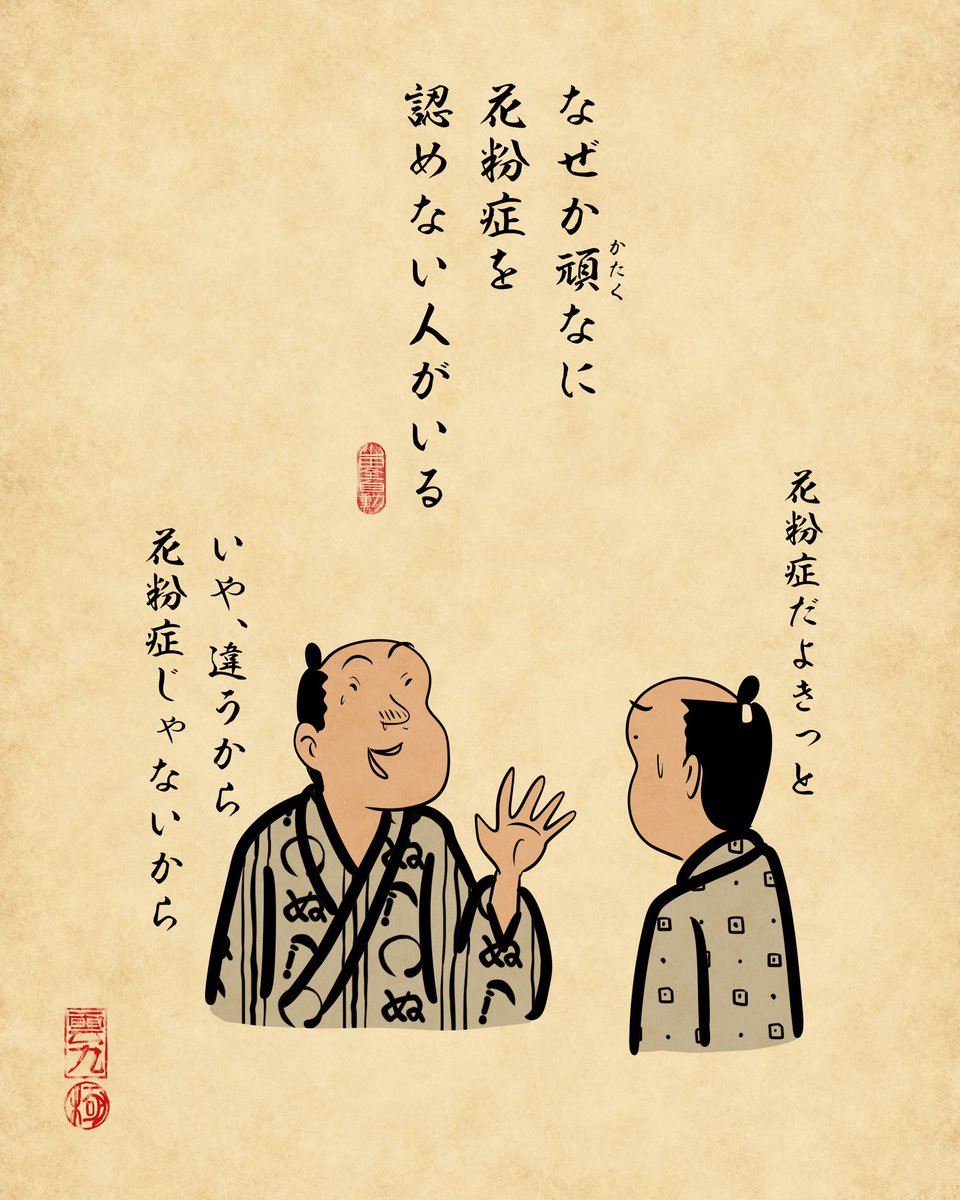 なぜか頑なに
かたく
花粉症を
認めない人がいる
花粉症だよきっと
いや、違うから
花粉症じゃないから